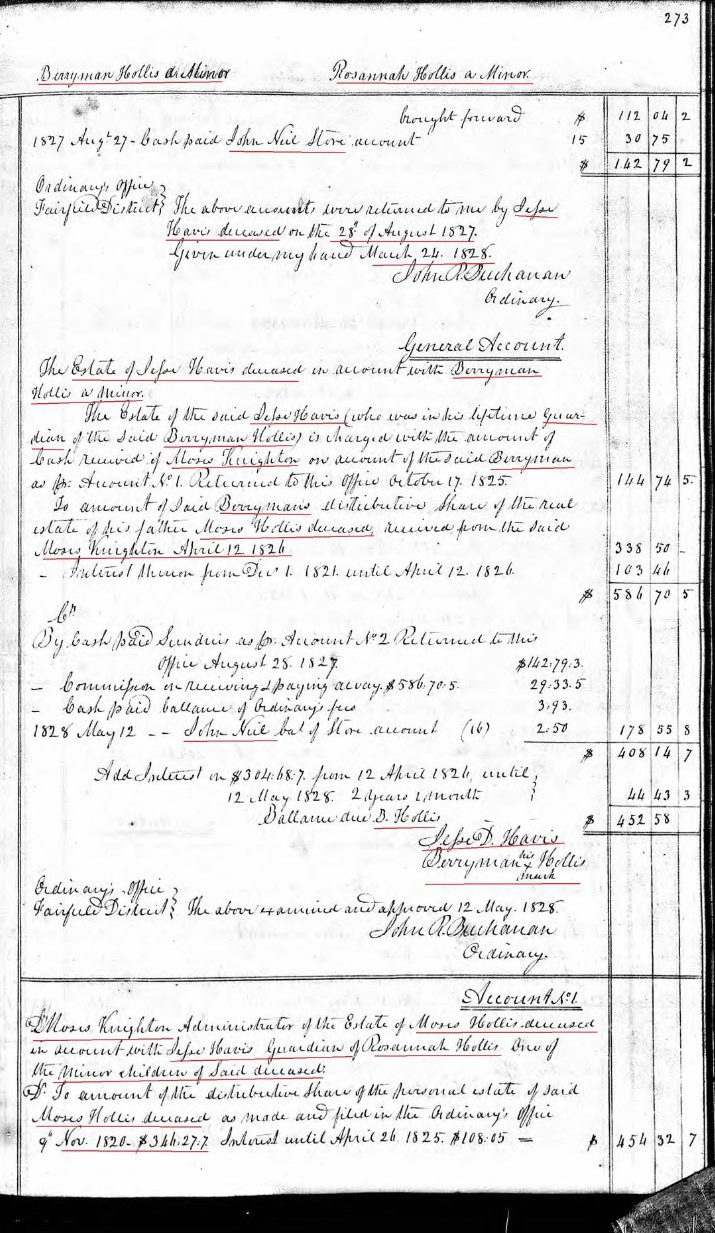 273
Berryman Hollis a Minor Rosannah Hollis a Minor.
brought forward $ 112 04 2
1827 Augt 27 - Cash paid John Neil Store account 15 30 75
$ 142 79 2
Ordinary's Office
Fairfield District } The above accounts were returned to me by Jesse
Havis deceased on the 28th of August 1827.
Given under my hand March 24. 1828.
John R. Buchanan
Ordinary
General Account.
The Estate of Jesse Havis deceased in account with Berryman
Hollis a Minor.
The Estate of the said Jesse Havis (who was in his lifetime Guar-
dian of the said Berryman Hollis) is charged with the amount of
Cash received of Moses Knighton on account of the said Berryman
as pr. Account No 1. Returned to this Office October 17. 1825. 144 74 5.
To amount of said Berrymans distributive Share of the real
estate of his father Moses Hollis deceased, received from the said
Moses Knighton April 12 1826 338 50 -
- Interest thereon from Decr 1. 1821. until April 12. 1826. 103 46
$ 586 70 5
Cr.
By Cash paid Sundries as pr. Account No 2 Returned to this
Office August 28. 1827. $142.79.3.
- Commission on receiving & paying away $586.70.5. 29.33.5
- Cash paid ballance of Ordinary's fees 3.93.
1828 May 12 - - John Neil bal of Store account (16) 2.50 178 55 8
$ 408 14 7
Add Interest on $304.68.7. from 12 April 1826, until
12 May 1828. 2 years 1, month } 44 43 3
Ballance due B. Hollis $ 452 58
Jesse D. Havis
Berryman his Hollis
x mark
Ordinary's Office
Fairfield District } The above examined and approved 12 May. 1828.
John R. Buchanan
Ordinary.
Account No 1.
Dr Moses Knighton Administrator of the Estate of Moses Hollis deceased
in account with Jesse Havis Guardian of Rosannah Hollis One of
the Minor children of Said deceased.
Dr. To amount of the distributive Share of the personal estate of said
Moses Hollis deceased as made and filed in the Ordinary's Office
9th Nov. 1820 - $346.27.7 Interest until April 26 1825. $108.05 = $ 454 32 7